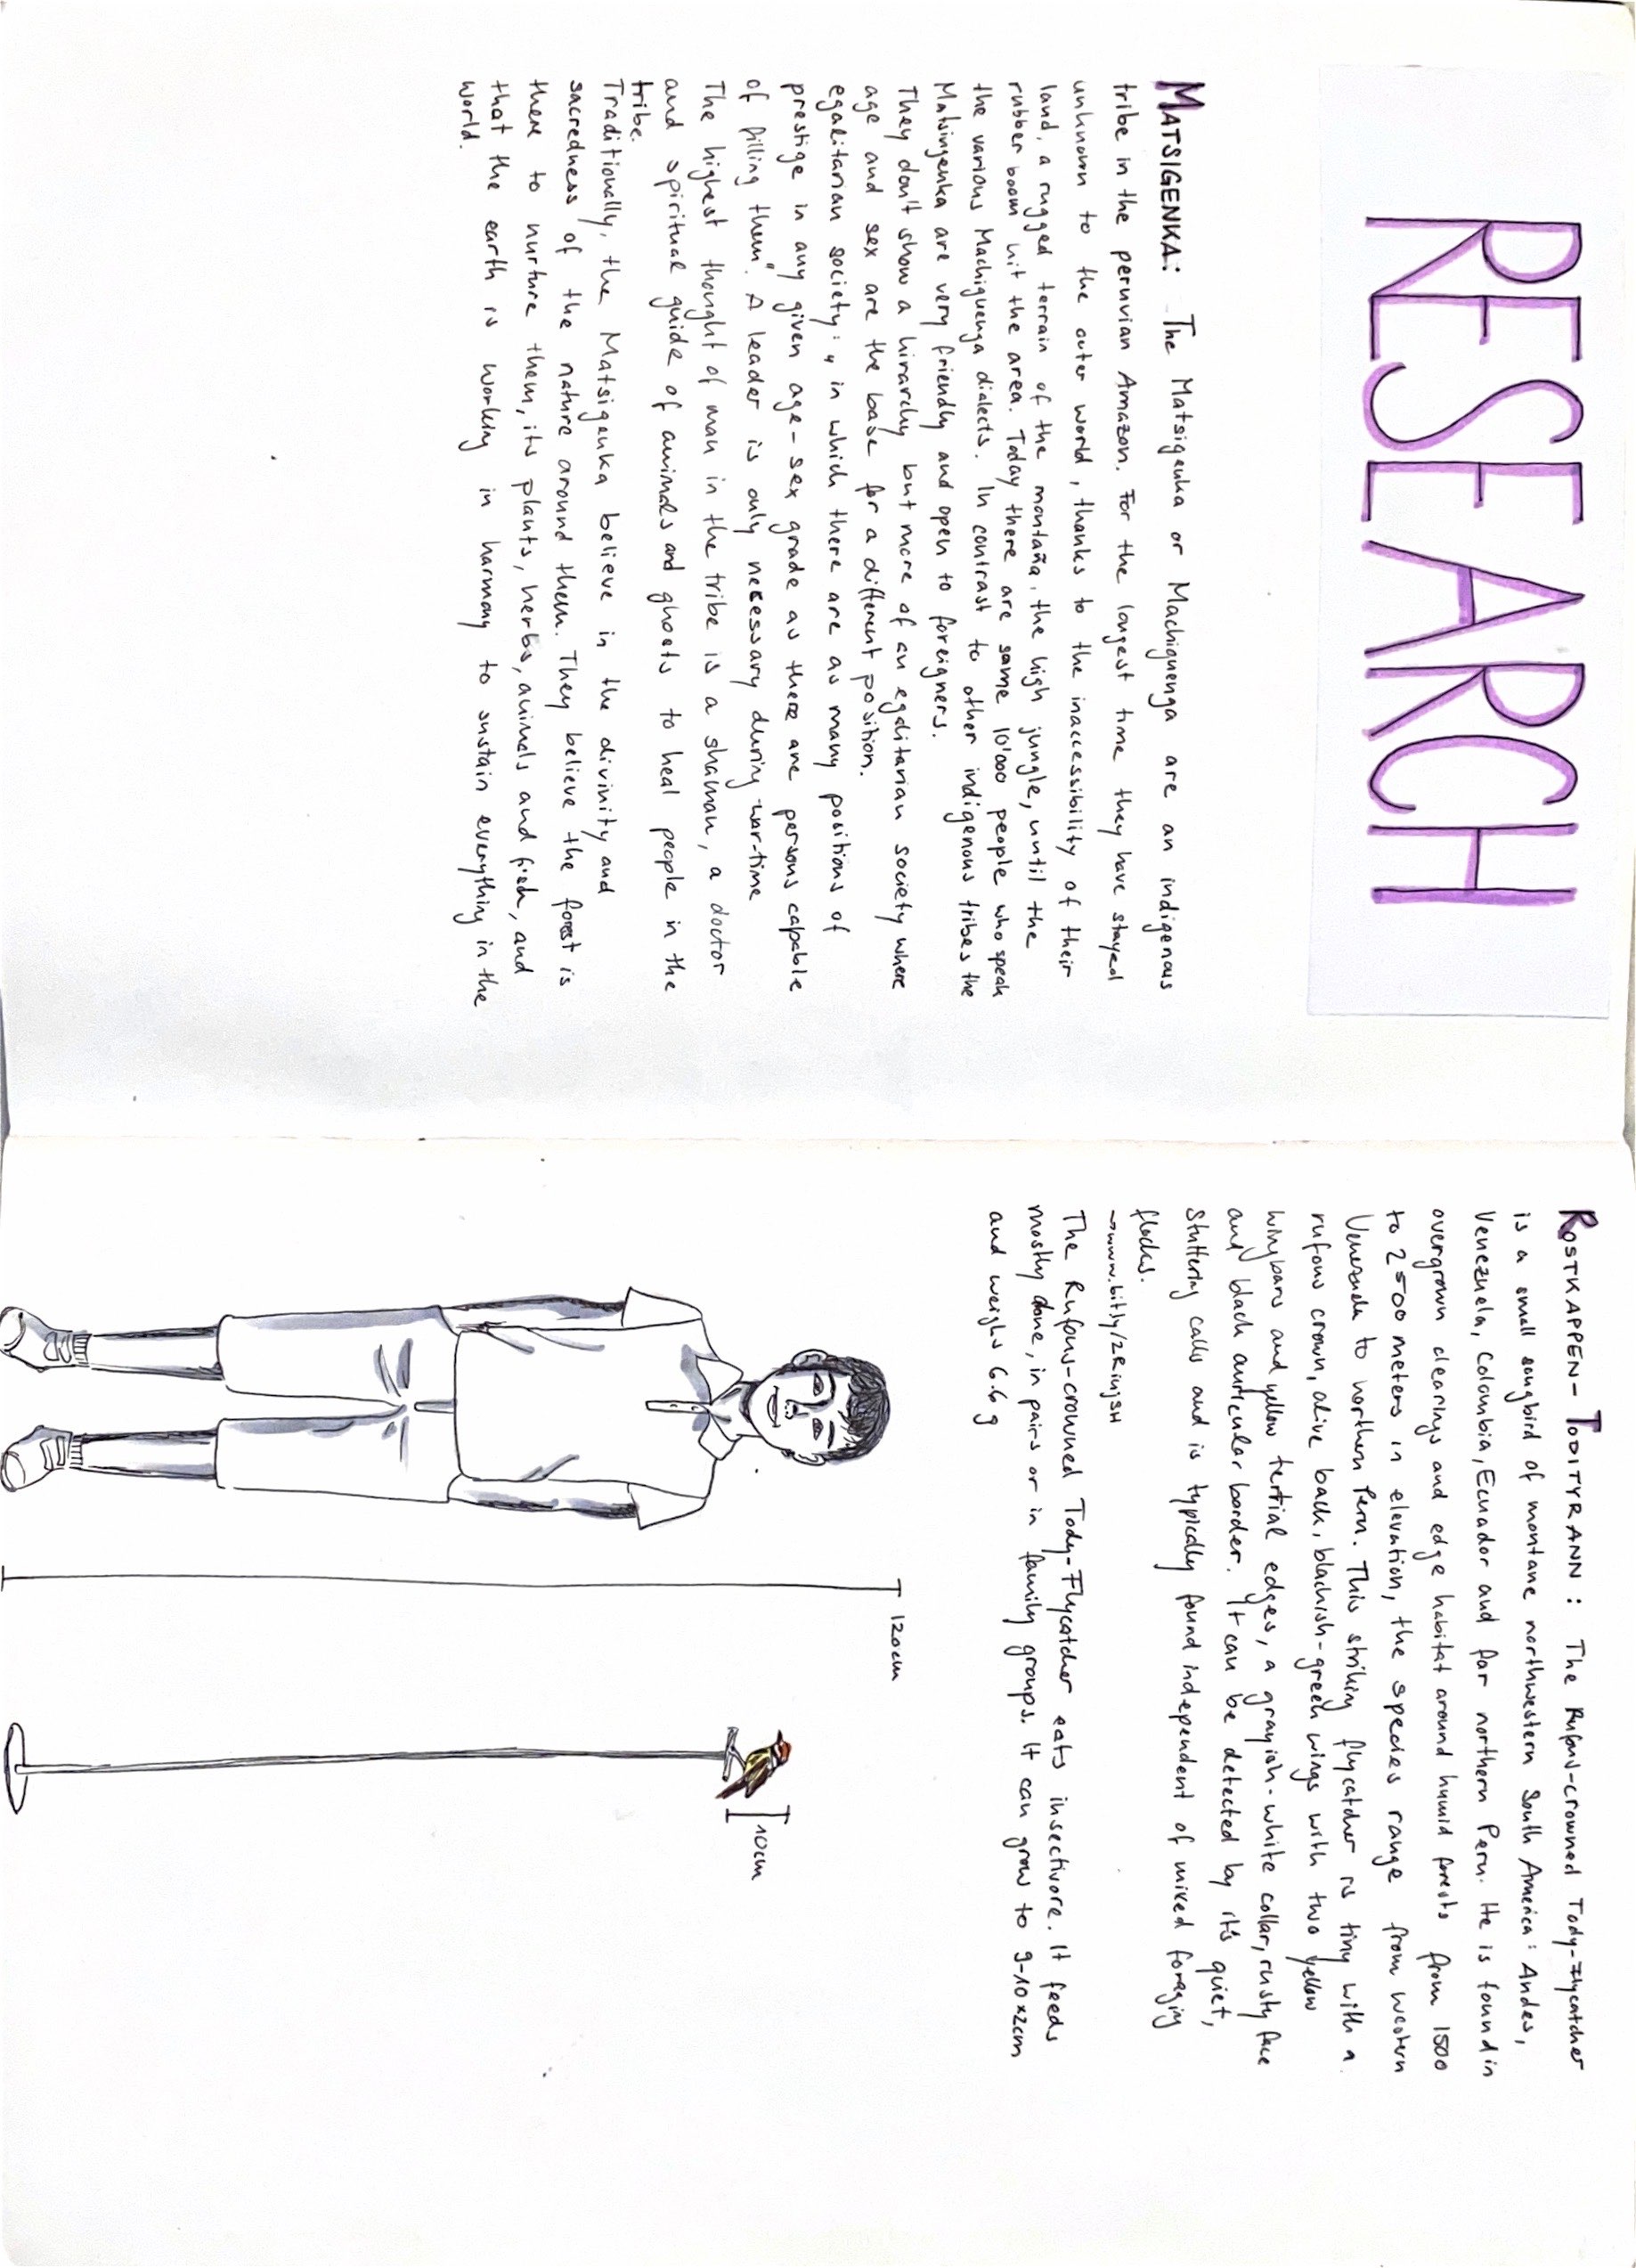 RESEARCH
MATSIGENKA: The Matsigenka or Machiguenga are an indigenous
tribe in the peruvian Amazon. For the longest time they have stayed
unknown to the outer world, thanks to the inaccessibility of their
land, a rugged terrain of the montaña, the high jungle, until the
rubber boom hit the area. Today there are some 10'000 people who speak
the various Machiguenga dialects. In contrast to other indigenous tribes the
Matsingenka are very friendly and open to foreigners.
They don't show a hirarchy but more of an egalitarian society where
age and sex are the base for a different position.
egalitarian society: „ in which there are as many positions of
prestige in any given age-sex grade as there are persons capable
of filling them". A leader is only necessary during war-time
The highest thought of man in the tribe is a shaman, a doctor
and spiritual guide of animals and ghosts to heal people in the
tribe.
Traditionally, the Matsigenka believe in the divinity and
sacredness of the nature around them. They believe the forest is
there to nurture them, its plants, herbs, animals and fish, and
that the earth is working in harmony to sustain everything in the
world.
ROSTKAPPEN-TODITYRANN: The Rufous-crowned Tody-Flycatcher
is a small songbird of montane northwestern South America: Andes,
Venezuela, Colombia, Ecuador and far northern Peru. He is found in
overgrown clearings and edge habitat around humid forests from 1500
to 2500 meters in elevation, the species range from western
Venezuela to northern Peru. This striking flycatcher is tiny with a
rufous crown, olive back, blackish-green wings with two yellow
wingbars and yellow tertial edges, a grayish-white collar, rusty face
and black auricular border. It can be detected by it's quiet,
stuttering calls and is typically found independent of mixed foraging
flocks.
→www.bit.ly/2RiujSH
The Rufous-crowned Tody-Flycatcher eats insectivore. It feeds
mostly alone, in pairs or in family groups. It can grow to 9-10x2cm
and weighs 6.6 g
120cm
10cm